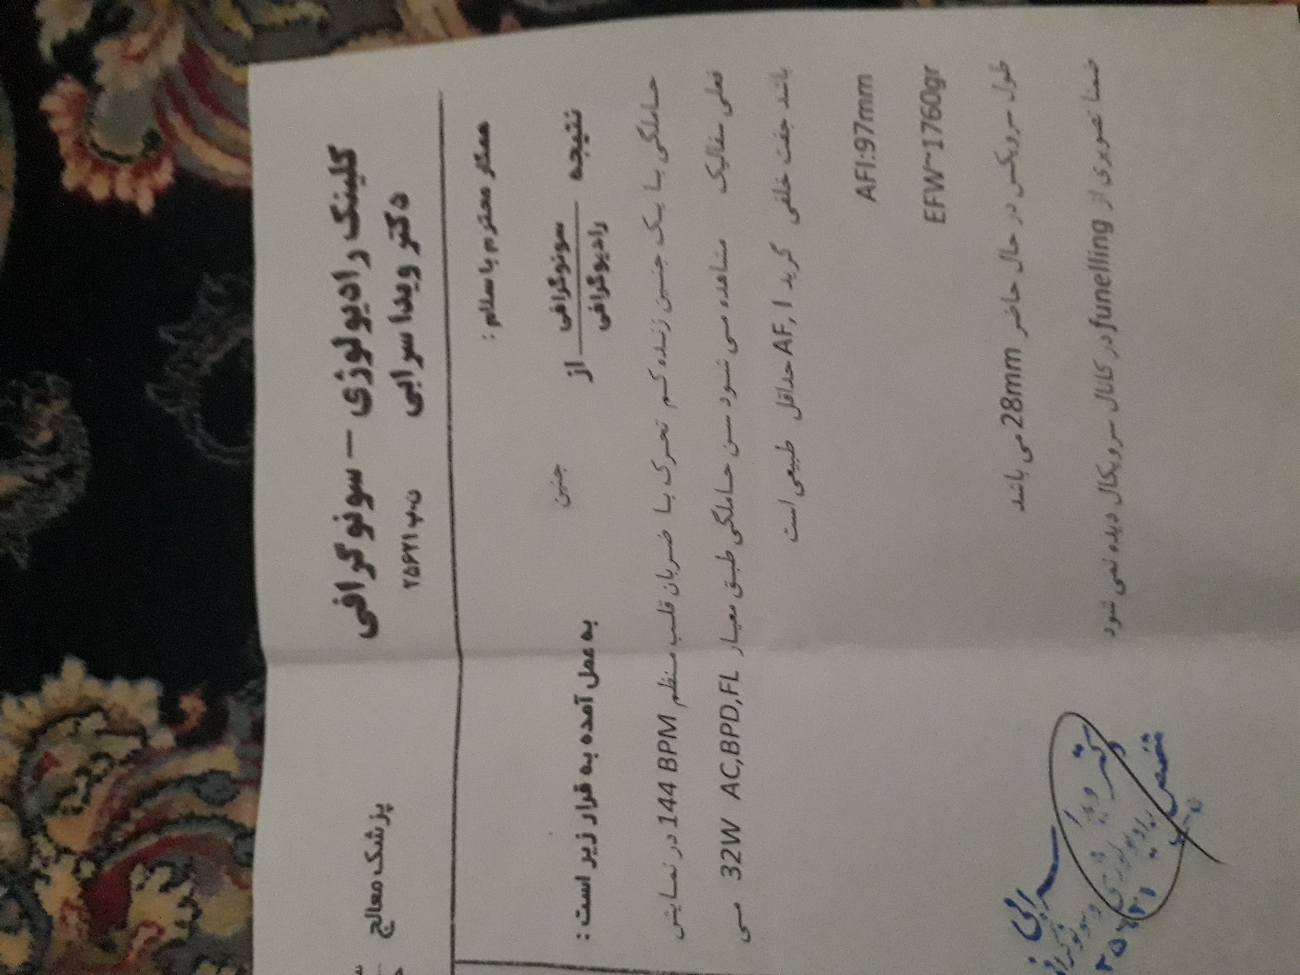 کلینک رادیولوژی – سونوگرافی
دکتر ویدا سرابی ن.پ ۲۵۶۲۱
پزشک معالج
همکار محترم با سلام :
نتیجه سونوگرافی از جنین به عمل آمده به قرار زیر است :
رادیوگرافی
حاملگی با یک جنین زنده کم تحرک با ضربان قلب منظم 144 BPM در نمایش
فعلی سفالیک مشاهده می شود سن حاملگی طبق معیار AC,BPD,FL 32W می
باشد جفت خلفی گرید I ,AF حداقل طبیعی است
AFI:97mm
EFW~1760gr
طول سرویکس در حال حاضر 28mm می باشد
ضمنا تصویری از funelling در کانال سرویکال دیده نمی شود
دکتر ویدا سرابی
متخصص رادیولوژی و سونوگرافی
۲۵۶۲۱